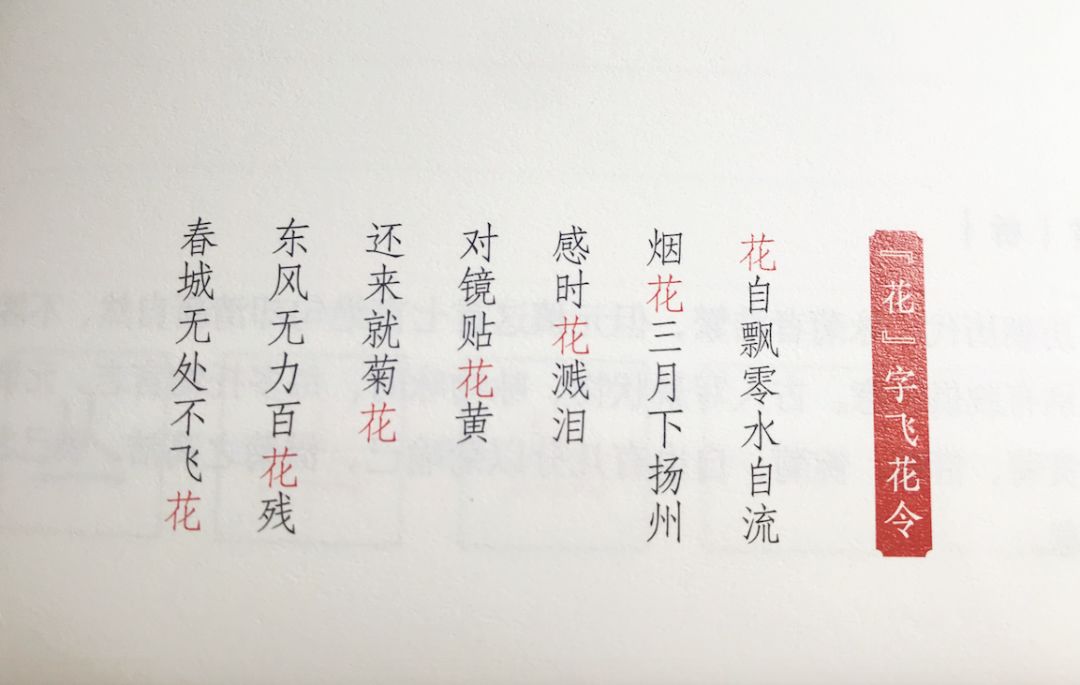 『花』字飞花令
花自飘零水自流
烟花三月下扬州
感时花溅泪
对镜贴花黄
还来就菊花
东风无力百花残
春城无处不飞花